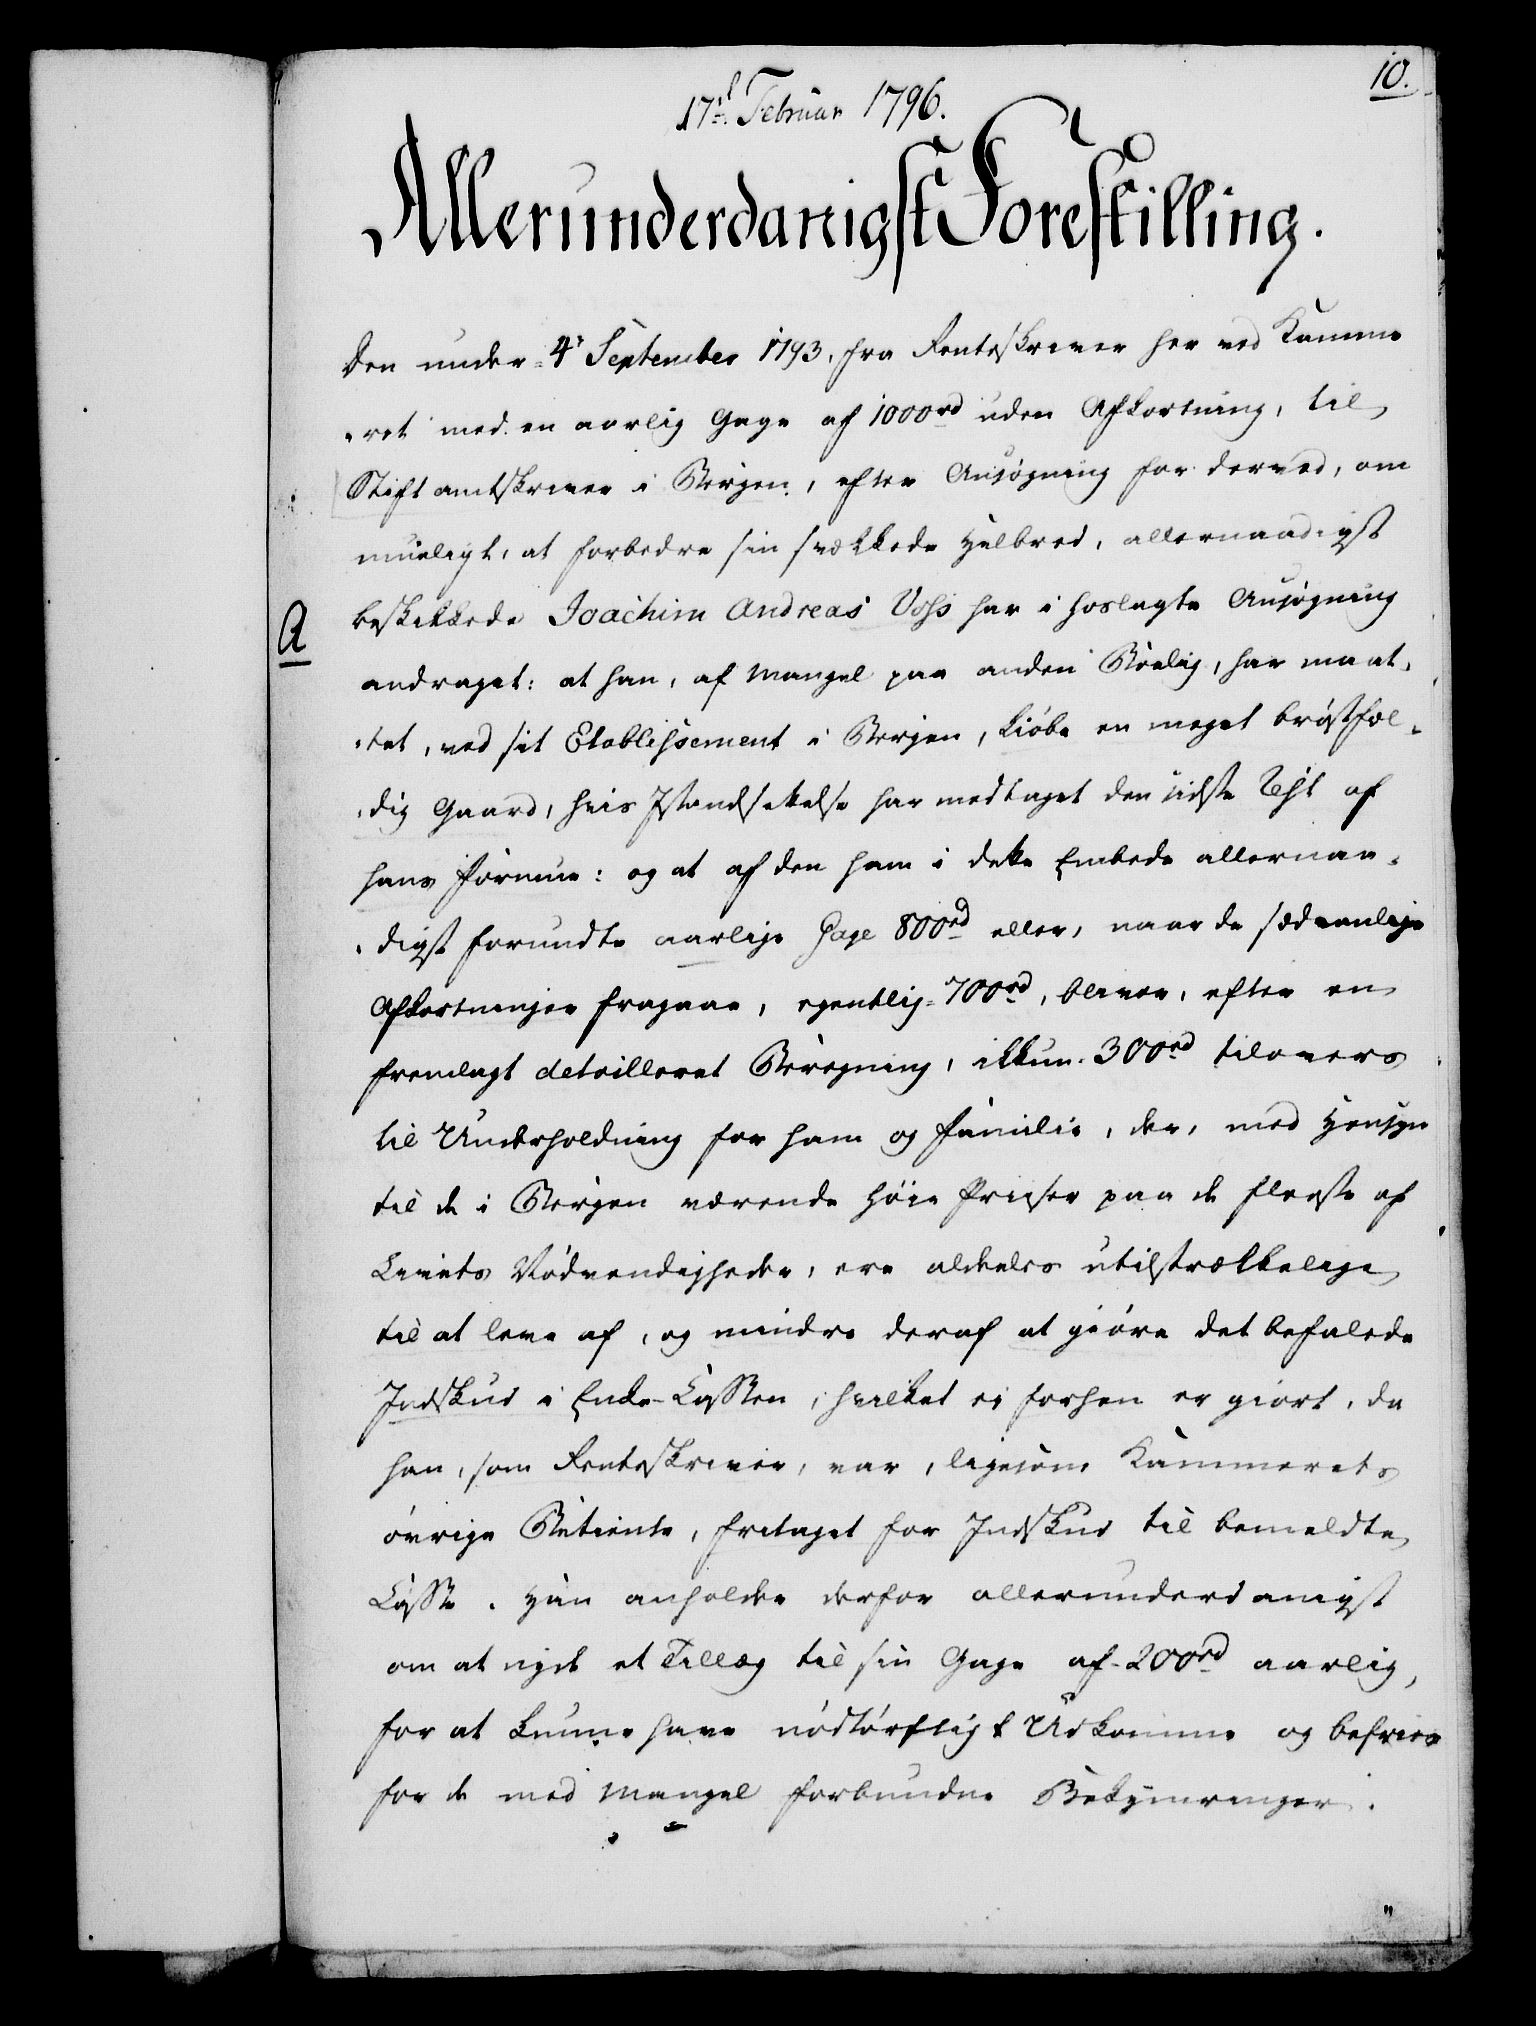 10.
17d. Februar 1796.
Allerunderdanigst Forestilling.
Den under 4de September 1793, fra Renteskriver her ved Kamme
ret med en aarlig Gage af 1000rd uden Afkortning, til
Stiftamtskriver i Bergen, efter Ansøgning for derved, om
mueligt, at forbedre sin svækkede Helbred, allernaadigst
A
beskikkede Joachim Andreas Voss har i hoslagte Ansøgning
andraget: at han, af Mangel paa anden Boelig, har maat,
,tet, ved sit Etablissement i Bergen, kiøbe en meget brøstfæl,
,dig Gaard, hvis Istandsettelse har medtaget den sidste Rest af
hans Formue: og at af den ham i dette Embede allernaa,
,digst forundte aarlige Gage 800rd eller, naar de sædvanlige
Afkortninger fragaae, egentlig 700rd, bliver, efter en
fremlagt detailleret Beregning, ikkun 300rd tilovers
til Underholdning for ham og Familie, der, med Hensyn
til de i Bergen værende høie Priser paa de fleeste af
Livets Nødvendigheder, ere aldeeles utilstrækkelige
til at leve af, og mindre deraf at giøre det befalede
Indskud i Enke-Cassen, hvilket ei forhen er giort, da
han, som Renteskriver, var, ligesom Kammerets
øvrige Betiente, fritaget for Indskud til bemeldte
Casse. Han anholder derfor allerunderdanigst
om at nyde et Tillæg til sin Gage af 200rd aarlig,
for at kunne have nødtørftigt Udkomme og befries
for de med Mangel forbundne Bekymringer.
"